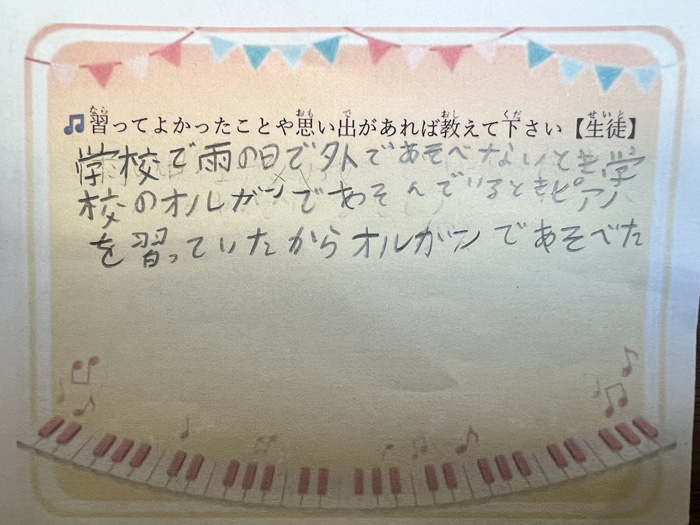 習ってよかったことや思い出があれば教えて下さい【生徒】
学校で雨の日で外であそべないとき学
校のオルガンであそんでいるときピアノ
を習っていたからオルガンであそべた